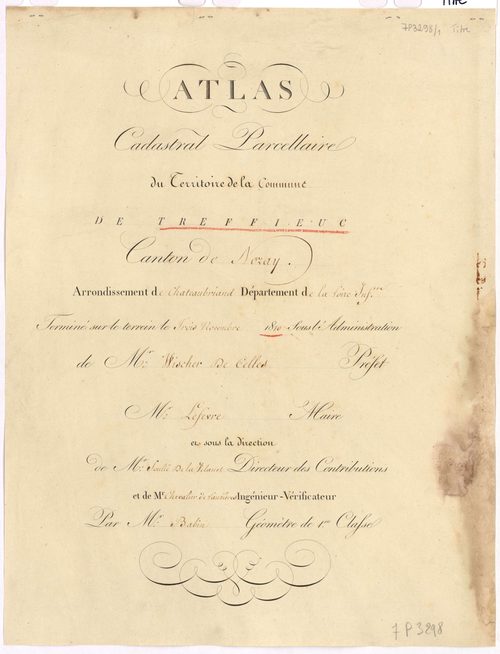 7P3298/1 Titre
ATLAS
Cadastral Parcellaire
du Territoire de la Commune
DE TREFFIEUC
Canton de Nozay.
Arrondissement de Chateaubriand Département de la Loire Inf.re
Terminé sur le terrein le trois Novembre 1810 Sous l'Administration
de Mr. Wischer De Celles Préfet
Mr. Lefevre Maire
et sous la direction
de Mr. De la Directeur des Contributions
et de Mr. Chevalier de Ingénieur-Vérificateur
Par Mr. Babin Géomètre de 1re Classe
7 P 3298